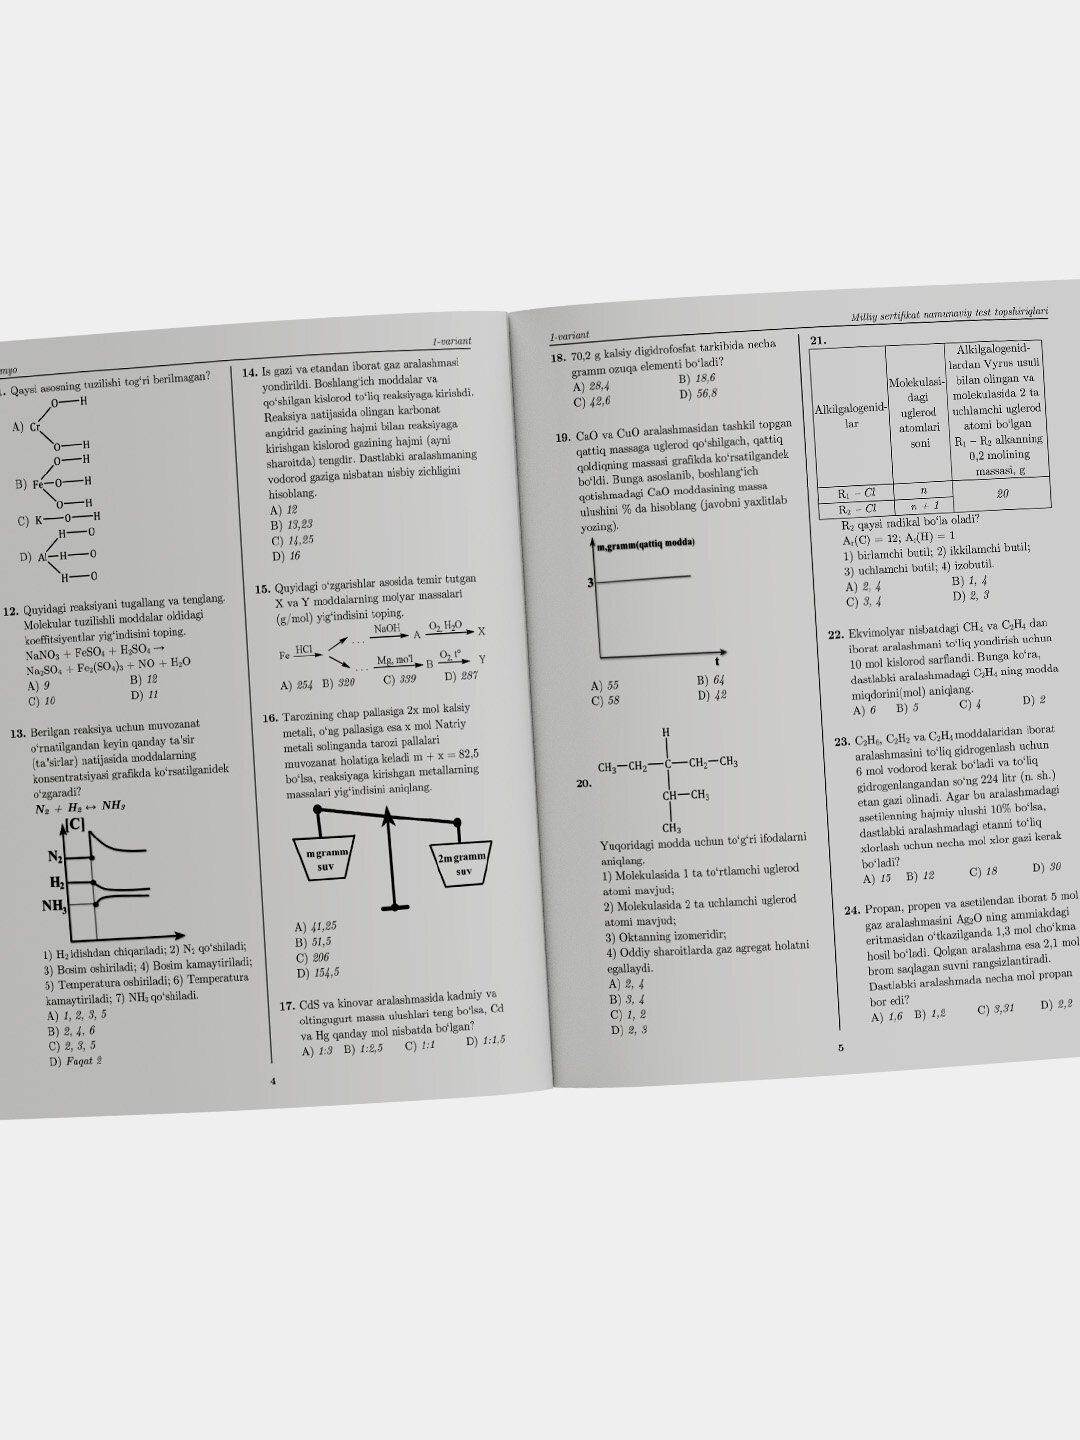 1-variant
11. Qaysi asosning tuzilishi tog‘ri berilmagan?
A) Cr O—H O—H
B) Fe O—H O—H O—H
C) K—O—H
D) Al H—O H—O H—O
12. Quyidagi reaksiyani tugallang va tenglang.
Molekular tuzilishli moddalar oldidagi
koeffitsiyentlar yig‘indisini toping.
NaNO₃ + FeSO₄ + H₂SO₄ →
Na₂SO₄ + Fe₂(SO₄)₃ + NO + H₂O
A) 9 B) 12
C) 10 D) 11
13. Berilgan reaksiya uchun muvozanat
o‘rnatilgandan keyin qanday ta'sir
(ta'sirlar) natijasida moddalarning
konsentratsiyasi grafikda ko‘rsatilganidek
o‘zgaradi?
N₂ + H₂ ↔ NH₃
[C]
N₂
H₂
NH₃
1) H₂ idishdan chiqariladi; 2) N₂ qo‘shiladi;
3) Bosim oshiriladi; 4) Bosim kamaytiriladi;
5) Temperatura oshiriladi; 6) Temperatura
kamaytiriladi; 7) NH₃ qo‘shiladi.
A) 1, 2, 3, 5
B) 2, 4, 6
C) 2, 3, 5
D) Faqat 2
14. Is gazi va etandan iborat gaz aralashmasi
yondirildi. Boshlang‘ich moddalar va
qo‘shilgan kislorod to‘liq reaksiyaga kirishdi.
Reaksiya natijasida olingan karbonat
angidrid gazining hajmi bilan reaksiyaga
kirishgan kislorod gazining hajmi (ayni
sharoitda) tengdir. Dastlabki aralashmaning
vodorod gaziga nisbatan nisbiy zichligini
hisoblang.
A) 12
B) 13,23
C) 14,25
D) 16
15. Quyidagi o‘zgarishlar asosida temir tutgan
X va Y moddalarning molyar massalari
(g/mol) yig‘indisini toping.
Fe HCl ... NaOH A O₂, H₂O X
... Mg, mo'l B O₂ t° Y
A) 254 B) 320 C) 339 D) 287
16. Tarozining chap pallasiga 2x mol kalsiy
metali, o‘ng pallasiga esa x mol Natriy
metali solinganda tarozi pallalari
muvozanat holatiga keladi m + x = 82,5
bo‘lsa, reaksiyaga kirishgan metallarning
massalari yig‘indisini aniqlang.
m gramm suv
2m gramm suv
A) 41,25
B) 51,5
C) 206
D) 154,5
17. CdS va kinovar aralashmasida kadmiy va
oltingugurt massa ulushlari teng bo‘lsa, Cd
va Hg qanday mol nisbatda bo‘lgan?
A) 1:3 B) 1:2,5 C) 1:1 D) 1:1,5
4
1-variant
Milliy sertifikat namunaviy test topshiriqlari
18. 70,2 g kalsiy digidrofosfat tarkibida necha
gramm ozuqa elementi bo‘ladi?
A) 28,4 B) 18,6
C) 42,6 D) 56,8
19. CaO va CuO aralashmasidan tashkil topgan
qattiq massaga uglerod qo‘shilgach, qattiq
qoldiqning massasi grafikda ko‘rsatilgandek
bo‘ldi. Bunga asoslanib, boshlang‘ich
qotishmadagi CaO moddasining massa
ulushini % da hisoblang (javobni yaxlitlab
yozing).
m,gramm(qattiq modda)
3
t
A) 55 B) 64
C) 58 D) 42
20.
H
CH₃—CH₂—C—CH₂—CH₃
CH—CH₃
CH₃
Yuqoridagi modda uchun to‘g‘ri ifodalarni
aniqlang.
1) Molekulasida 1 ta to‘rtlamchi uglerod
atomi mavjud;
2) Molekulasida 2 ta uchlamchi uglerod
atomi mavjud;
3) Oktanning izomeridir;
4) Oddiy sharoitlarda gaz agregat holatni
egallaydi.
A) 2, 4
B) 3, 4
C) 1, 2
D) 2, 3
21.
Alkilgalogenid-
lar
Molekulasi-
dagi
uglerod
atomlari
soni
Alkilgalogenid-
lardan Vyrus usuli
bilan olingan va
molekulasida 2 ta
uchlamchi uglerod
atomi bo‘lgan
R₁ − R₂ alkanning
0,2 molining
massasi, g
R₁ − Cl n 20
R₂ − Cl n + 1
R₂ qaysi radikal bo‘la oladi?
Aᵣ(C) = 12; Aᵣ(H) = 1
1) birlamchi butil; 2) ikkilamchi butil;
3) uchlamchi butil; 4) izobutil.
A) 2, 4 B) 1, 4
C) 3, 4 D) 2, 3
22. Ekvimolyar nisbatdagi CH₄ va C₂H₄ dan
iborat aralashmani to‘liq yondirish uchun
10 mol kislorod sarflandi. Bunga ko‘ra,
dastlabki aralashmadagi C₂H₄ ning modda
miqdorini(mol) aniqlang.
A) 6 B) 5 C) 4 D) 2
23. C₂H₆, C₂H₂ va C₂H₄ moddalaridan iborat
aralashmasini to‘liq gidrogenlash uchun
6 mol vodorod kerak bo‘ladi va to‘liq
gidrogenlangandan so‘ng 224 litr (n. sh.)
etan gazi olinadi. Agar bu aralashmadagi
asetilenning hajmiy ulushi 10% bo‘lsa,
dastlabki aralashmadagi etanni to‘liq
xlorlash uchun necha mol xlor gazi kerak
bo‘ladi?
A) 15 B) 12 C) 18 D) 30
24. Propan, propen va asetilendan iborat 5 mol
gaz aralashmasini Ag₂O ning ammiakdagi
eritmasidan o‘tkazilganda 1,3 mol cho‘kma
hosil bo‘ladi. Qolgan aralashma esa 2,1 mol
brom saqlagan suvni rangsizlantiradi.
Dastlabki aralashmada necha mol propan
bor edi?
A) 1,6 B) 1,2 C) 3,31 D) 2,2
5